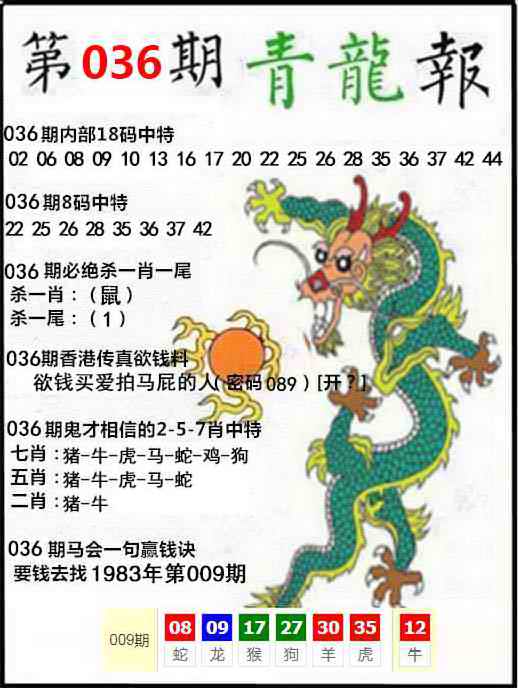 第036期青龍報
036期内部18码中特
02 06 08 09 10 13 16 17 20 22 25 26 28 35 36 37 42 44
036期8码中特
22 25 26 28 35 36 37 42
036 期必绝杀一肖一尾
杀一肖：（鼠）
杀一尾：（1）
036期香港传真欲钱料
欲钱买爱拍马屁的人(密码089）[开？]
036期鬼才相信的2-5-7肖中特
七肖：猪-牛-虎-马-蛇-鸡-狗
五肖：猪-牛-虎-马-蛇
二肖：猪-牛
036 期马会一句赢钱诀
要钱去找1983年第009期
009期 08 09 17 27 30 35 12
蛇 龙 猴 狗 羊 虎 牛